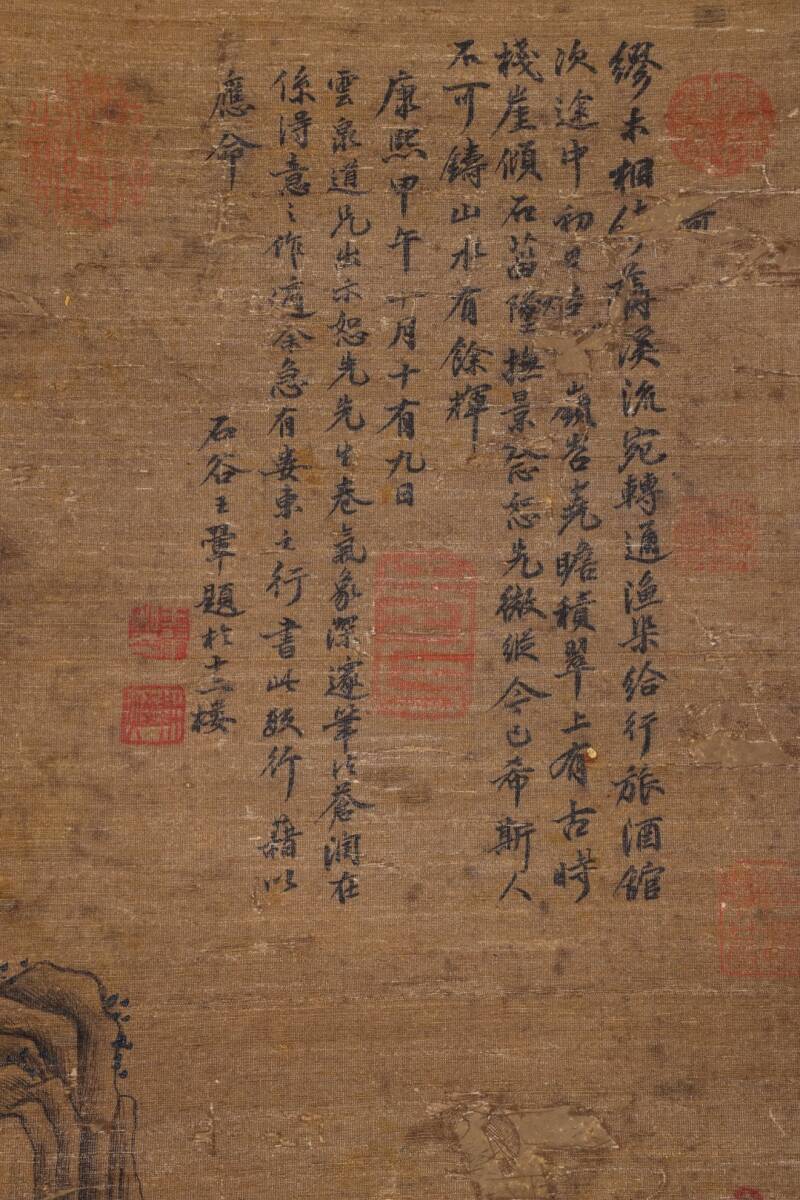 可
繆木相 溪流宛轉通漁梁給行旅酒館
次途中初 嵐岩堯瞻積翠上有古時
棧崖傾石菑墜撫景念恕先微縱今已希斯人
不可鑄山水有餘輝
康熙甲午十月十有九日
雲泉道兄出示恕先先生卷氣象深邃筆法蒼潤在
係得意之作適余急有婁東之行書此數行藉以
應命
石谷王翬題於十二樓